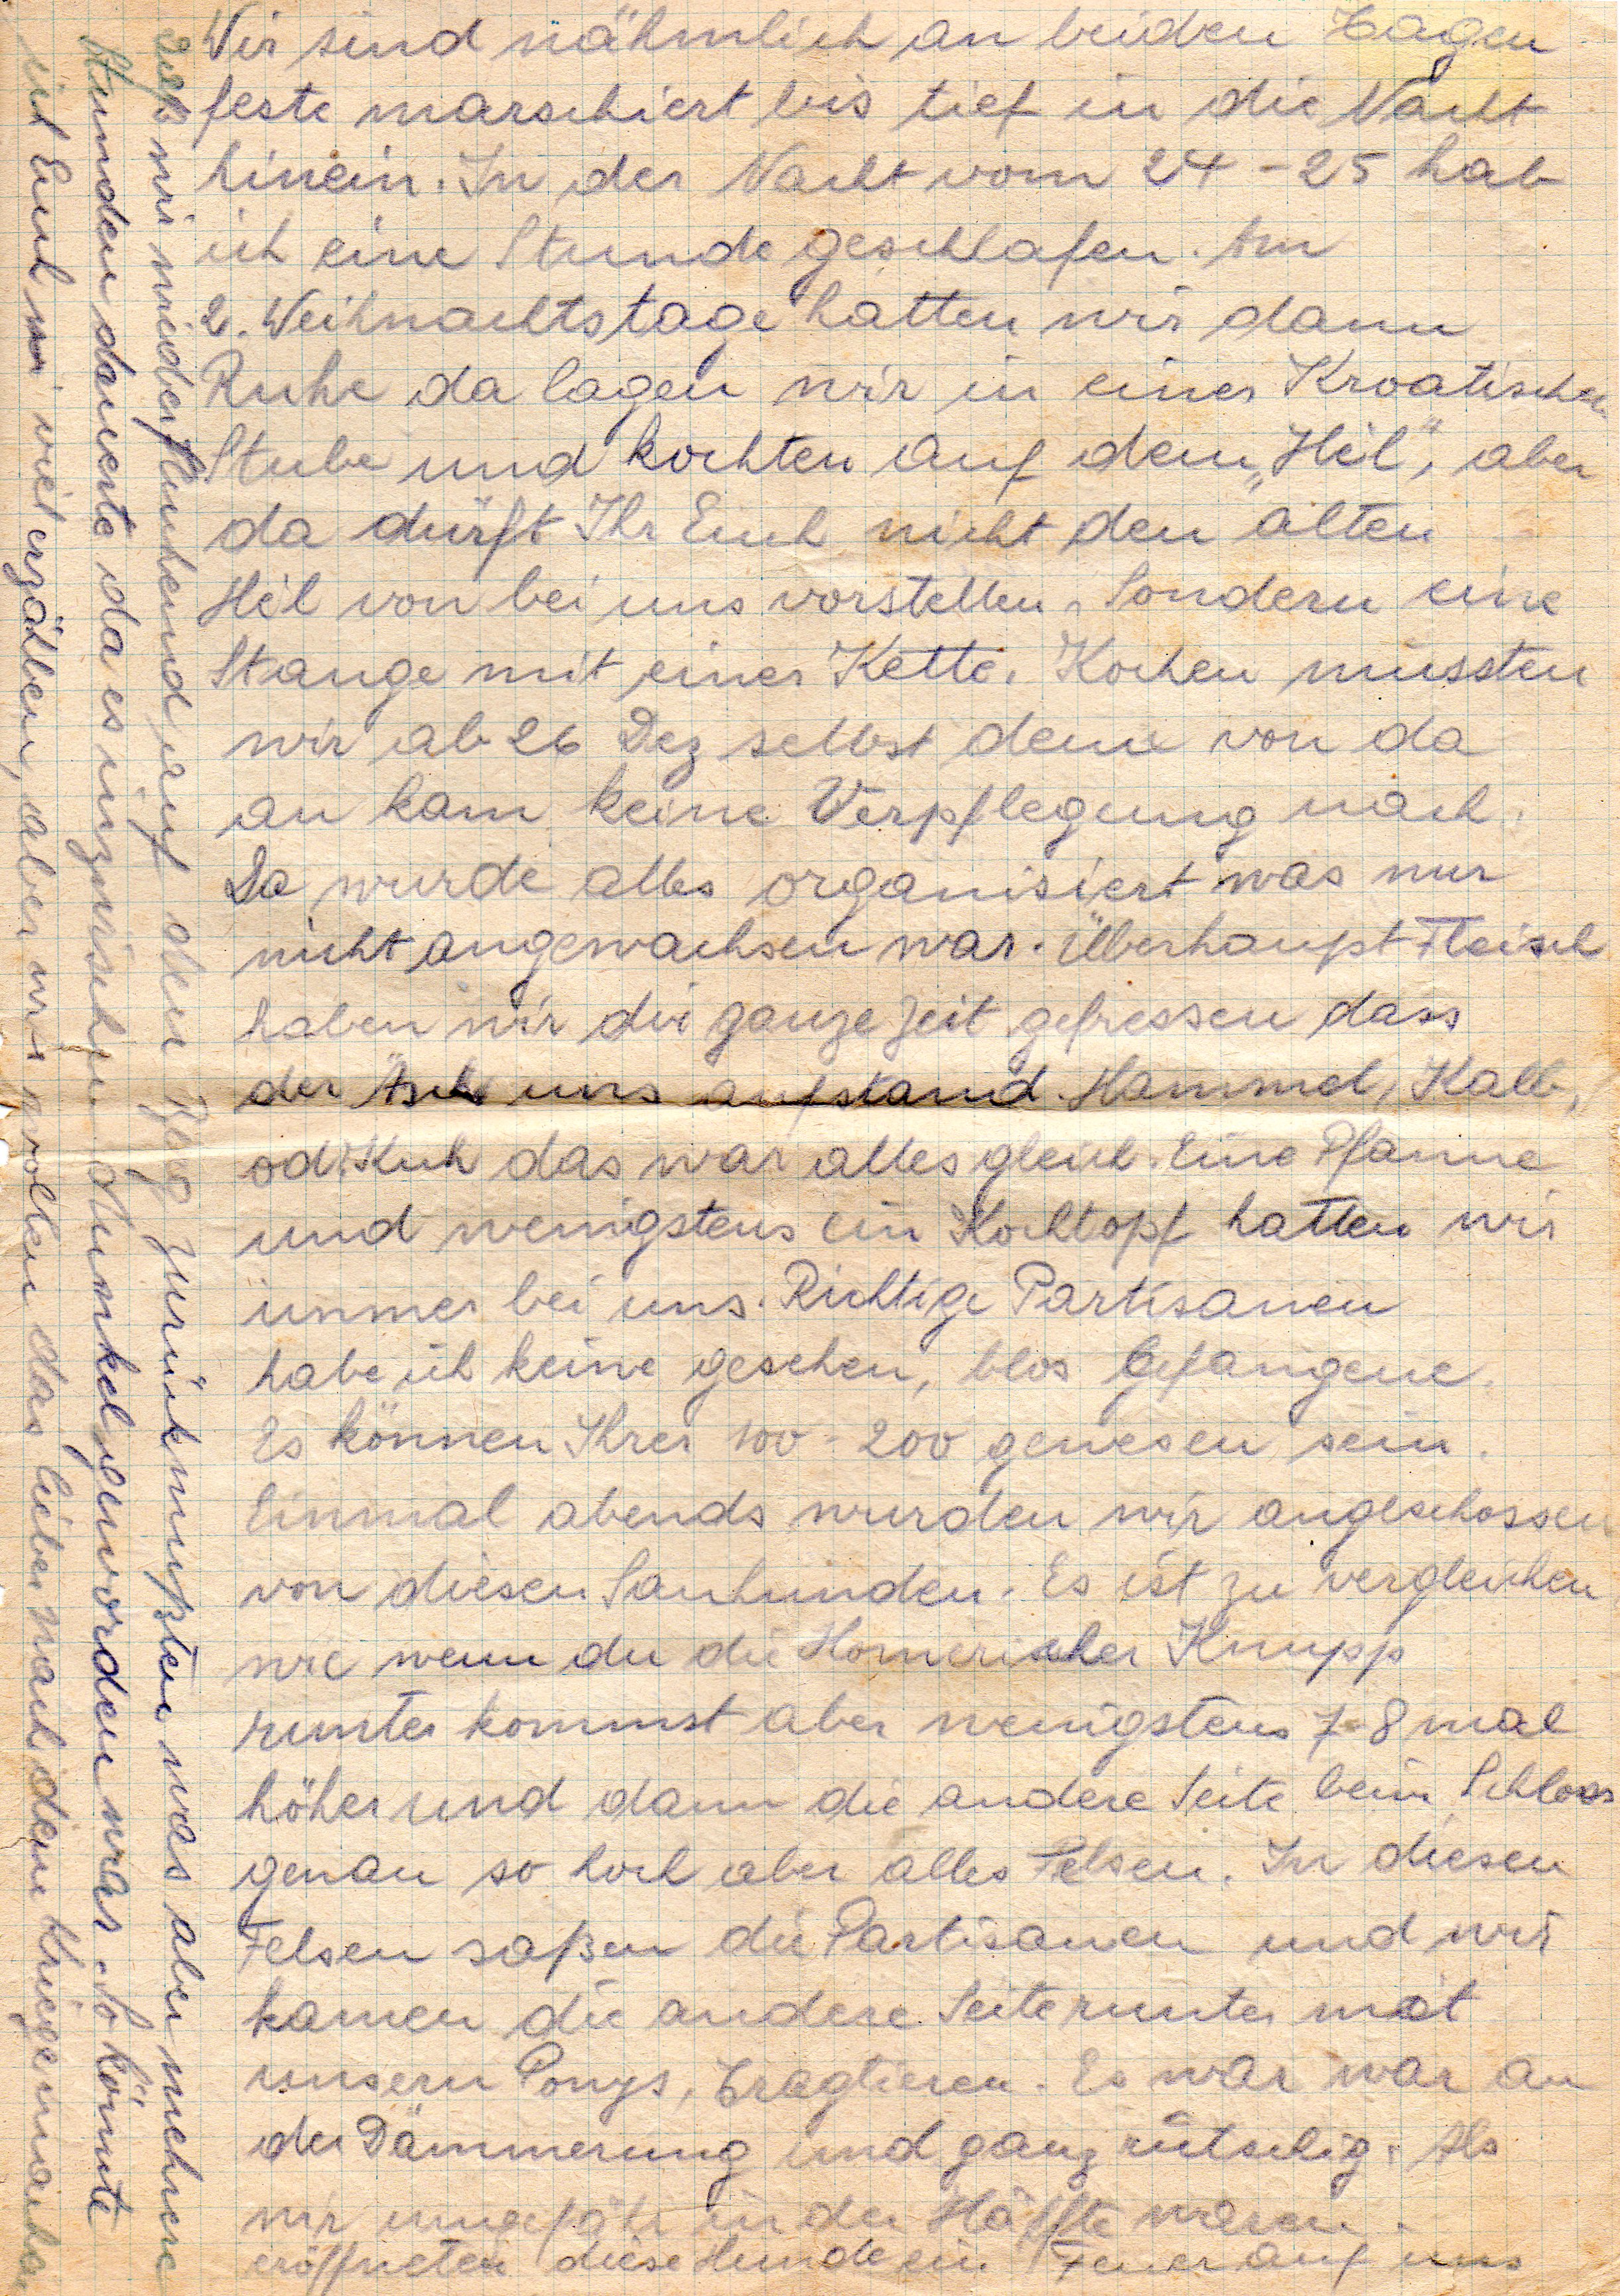 Wir sind nähmlich an beiden Tagen
feste marschiert bis tief in die Nacht
hinein. In der Nacht vom 24-25 hab
ich eine Stunde geschlafen. Am
2. Weihnachtstage hatten wir dann
Ruhe da lagen wir in einer Kroatischen
Stube und kochten auf dem „Hél“, aber
da dürft Ihr Euch nicht den alten
Hél von bei uns vorstellen, Sondern eine
Stange mit einer Kette. Kochen mussten
wir ab 26 Dez selbst denn von da
an kam keine Verpflegung nach.
Da wurde alles organisiert was nur
nicht angewachsen war. Überhaupt Fleisch
haben wir die ganze Zeit gefressen dass
der uns aufstand. Hammel, Kalb,
od. Kuh das war alles gleich. Eine Pfanne
und wenigstens ein Kochtopf hatten wir
immer bei uns. Richtige Partisanen
habe ich keine gesehen, blos Gefangene.
Es können Ihrer 100-200 gewesen sein.
Einmal abends wurden wir angeschossen
von diesen Sauhunden. Es ist zu vergleichen
wie wenn du die Homericher Knupp
runter kommst aber wenigstens 7-8 mal
höher und dann die andere Seite beim Schloss
genau so hoch aber alles Felsen. In diesen
Felsen saßen die Partisanen und wir
kamen die andere Seite runter mit
unsern Ponys, Tragtieren. Es war war an
der Dämmerung und ganz rütschig. Als
wir ungefähr in der Häffte waren.
eröffneten diese Hunde ein Feuer auf uns
wir wieder fluchend auf den Berg zurück mußten was aber mehrere
Stunden dauerte da es inzwischen dunkel geworden war. So könnte
ich Euch viel erzählen, aber wir wollen das lieber nach dem Kriege machen